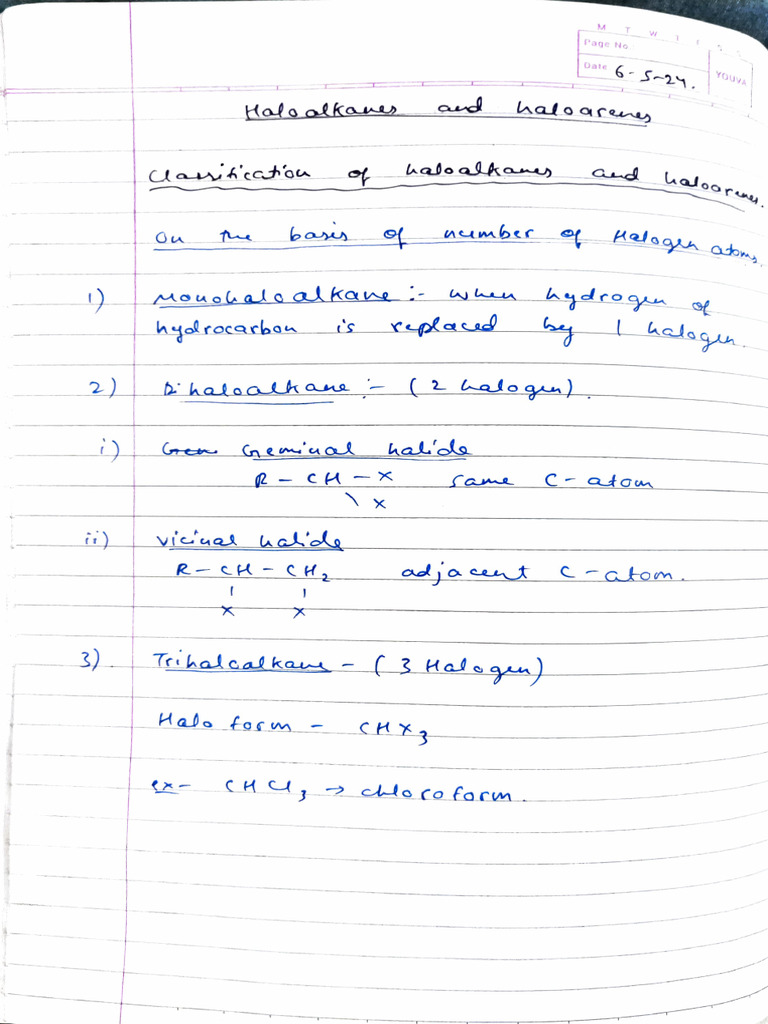 M T W T
Page No.
Date 6-5-24.
YOUVA
Haloalkanes and haloarenes
Classification of haloalkanes and haloarenes.
On the basis of number of Halogen atoms.
1) Monohaloalkane :- When hydrogen of
hydrocarbon is replaced by 1 halogen.
2) Dihaloalkane :- (2 halogen).
i) Geminal halide
R - CH - X same C-atom
\ X
ii) Vicinal halide
R - CH - CH2 adjacent C-atom.
X X
3). Trihaloalkane - (3 Halogen)
Halo form - CHX3
ex- CHCl3 → chloroform.